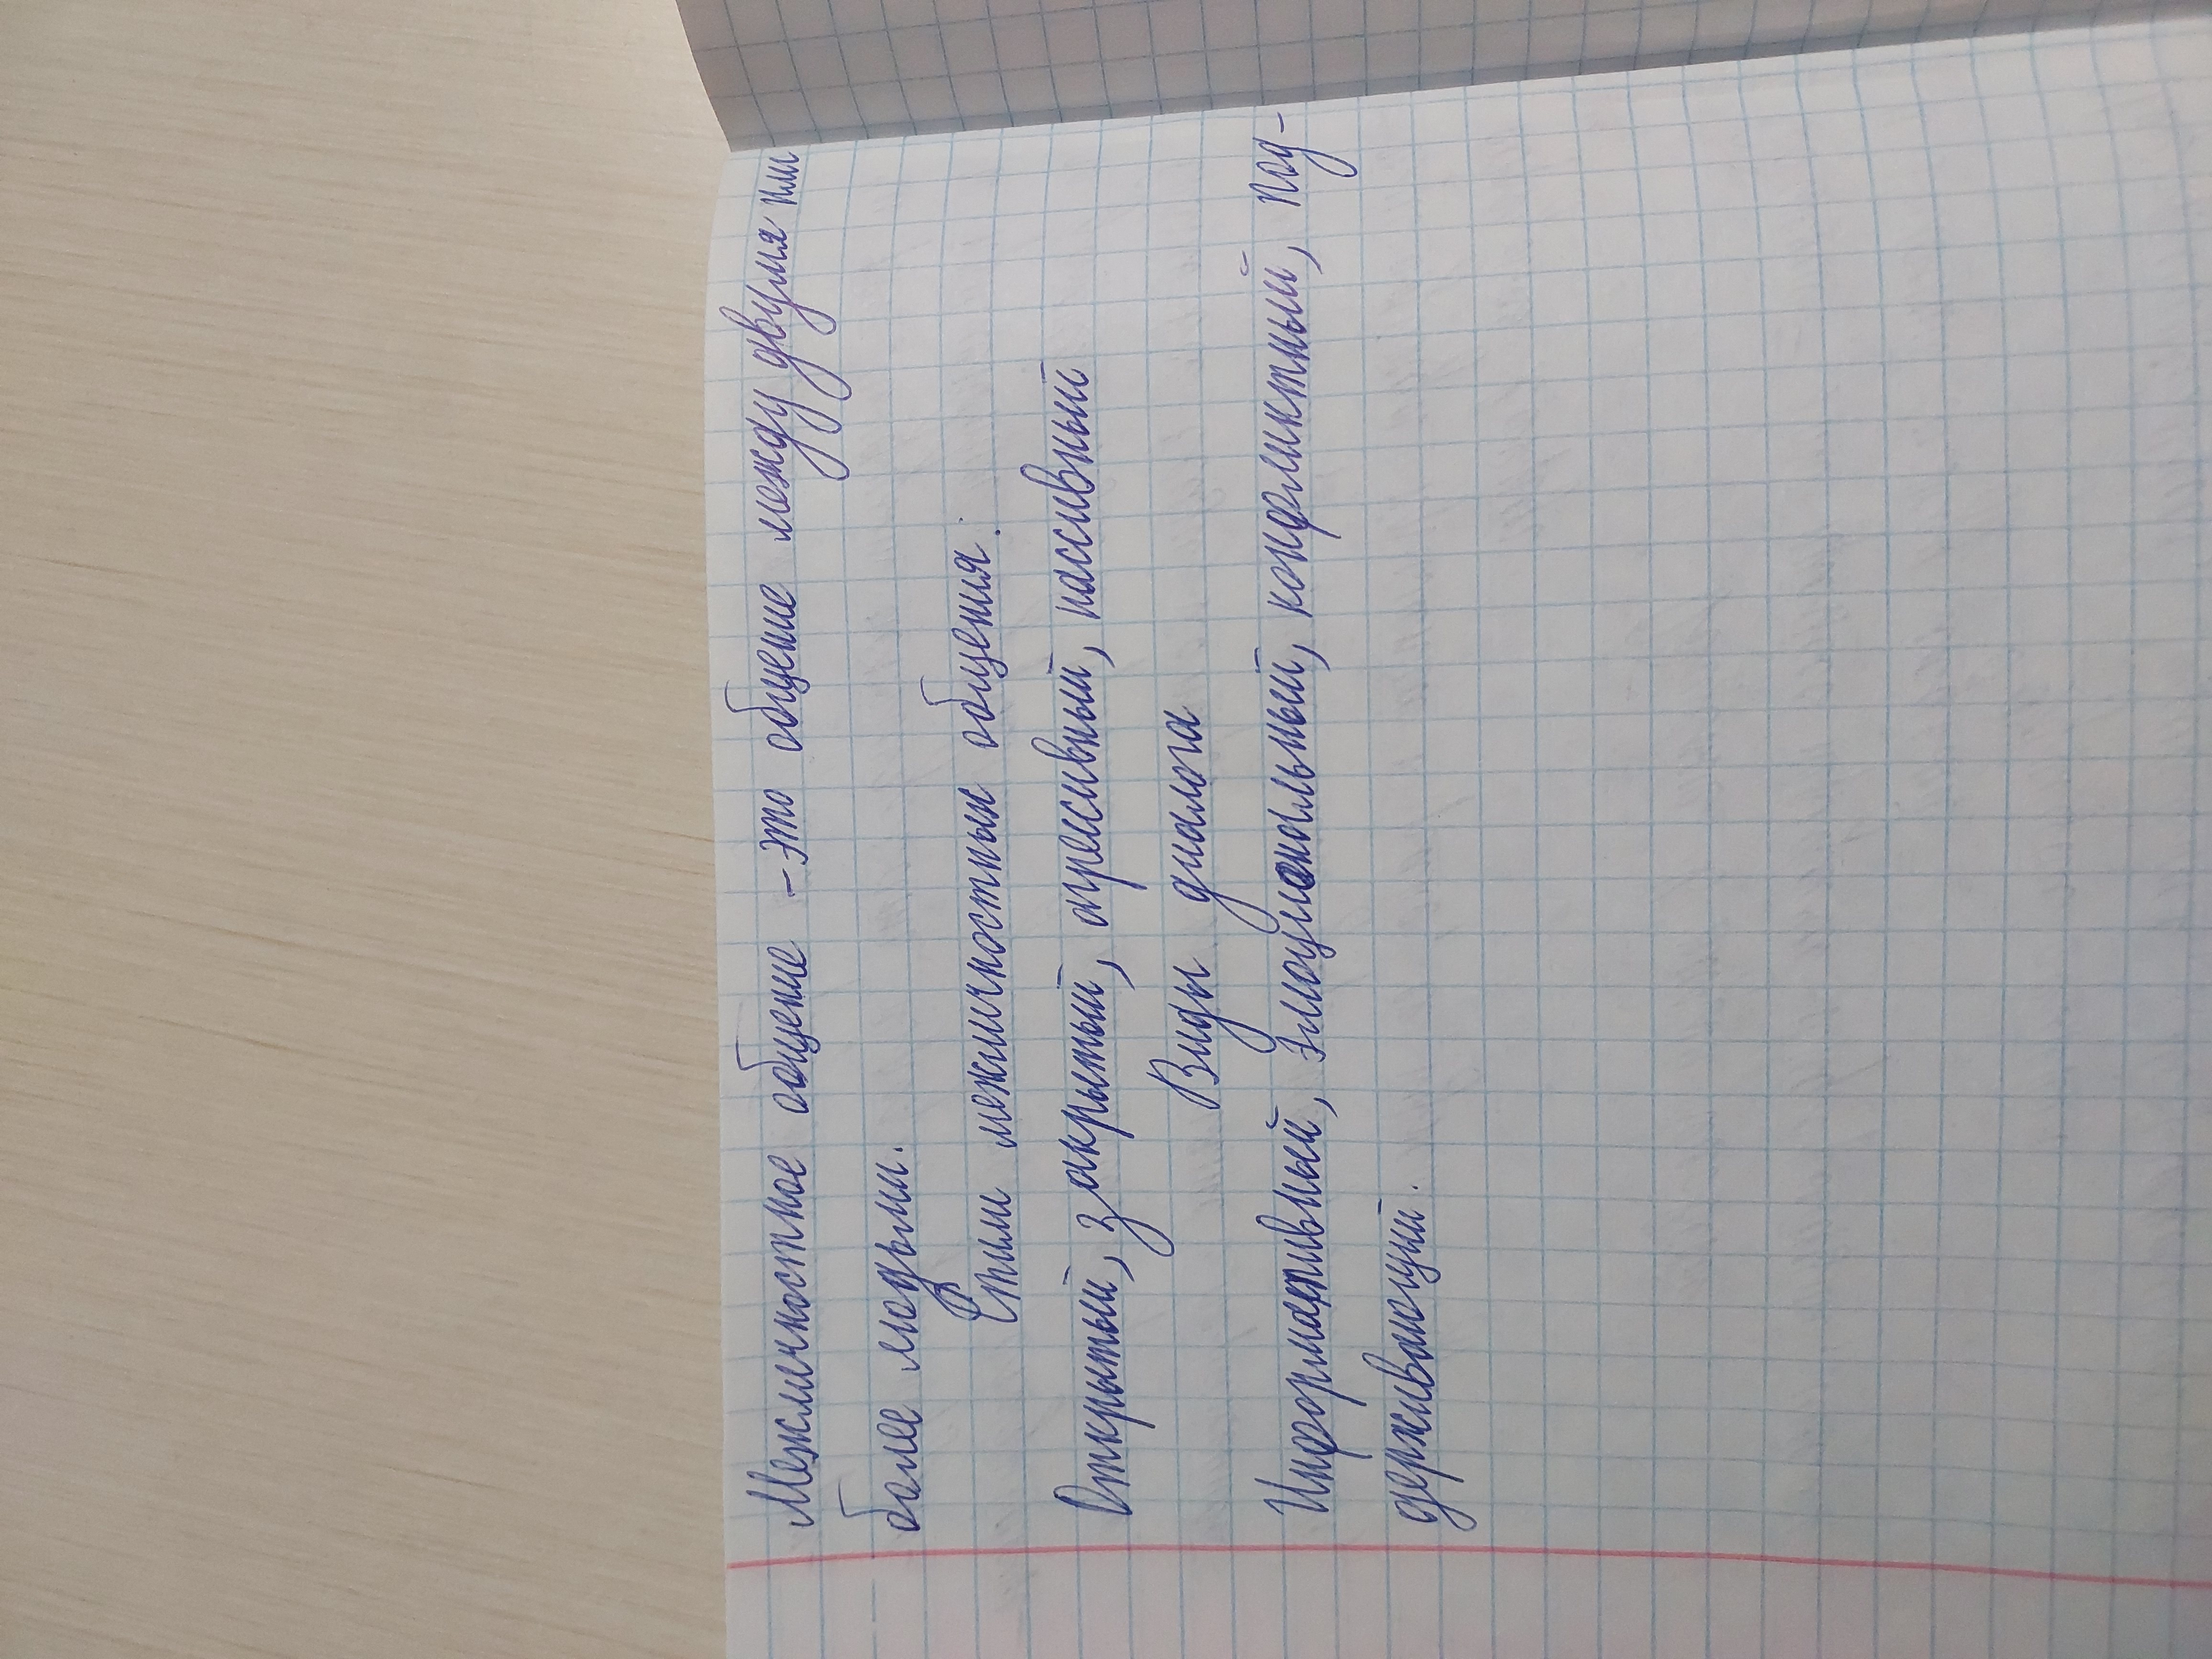 Межличностное общение - это общение между двумя или
более людьми.
Стили межличностных общения:
Открытый, закрытый, агрессивный, пассивный
Виды диалога
Информативный, Эмоциональный, конфликтный, под-
держивающий.